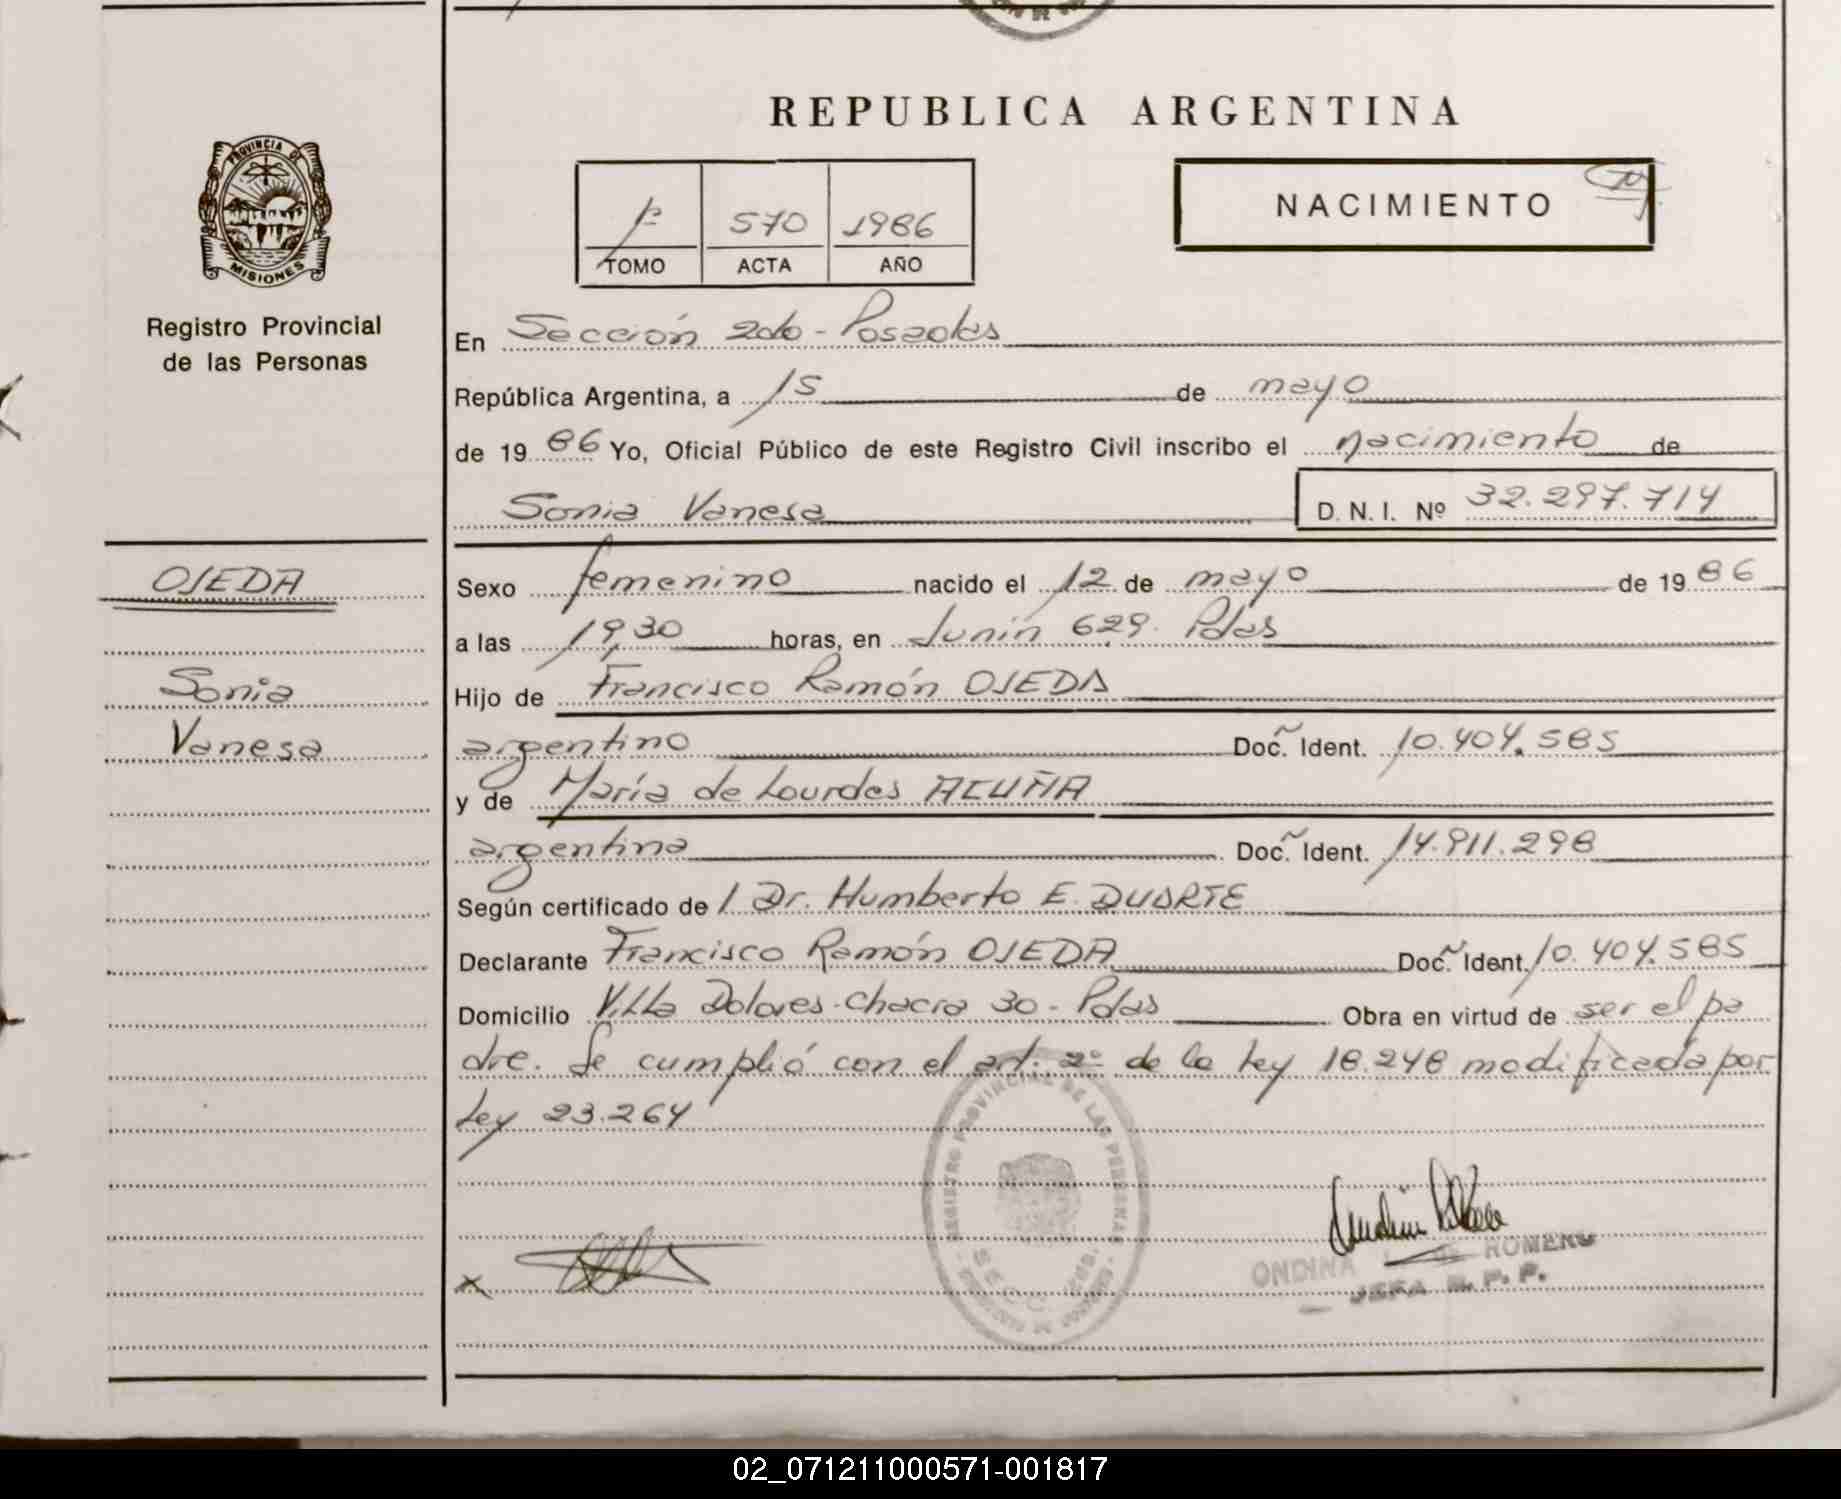 REPUBLICA ARGENTINA
PROVINCIA DE
MISIONES
Registro Provincial
de las Personas
1º 570 1986
TOMO ACTA AÑO
NACIMIENTO
En Sección 2da - Posadas
República Argentina, a 15 de mayo
de 1986 Yo, Oficial Público de este Registro Civil inscribo el nacimiento de
Sonia Vanesa D. N. I. Nº 32.297.714
OJEDA
Sonia
Vanesa
Sexo femenino nacido el 12 de mayo de 1986
a las 19,30 horas, en Junín 629. Pdas
Hijo de Francisco Ramón OJEDA
argentino Doc. Ident. 10.404.585
y de María de Lourdes ACUÑA
argentina Doc. Ident. 14.911.298
Según certificado de l Dr. Humberto E. DUARTE
Declarante Francisco Ramón OJEDA Doc. Ident. 10.404.585
Domicilio Villa Dolores - Chacra 30 - Pdas Obra en virtud de ser el pa
dre. Se cumplió con el art: 2º de la Ley 18.248 modificada por
Ley 23.264
REGISTRO PROVINCIAL DE LAS PERSONAS
ONDINA DE ROMERO
JEFA R. P. P.
02_071211000571-001817